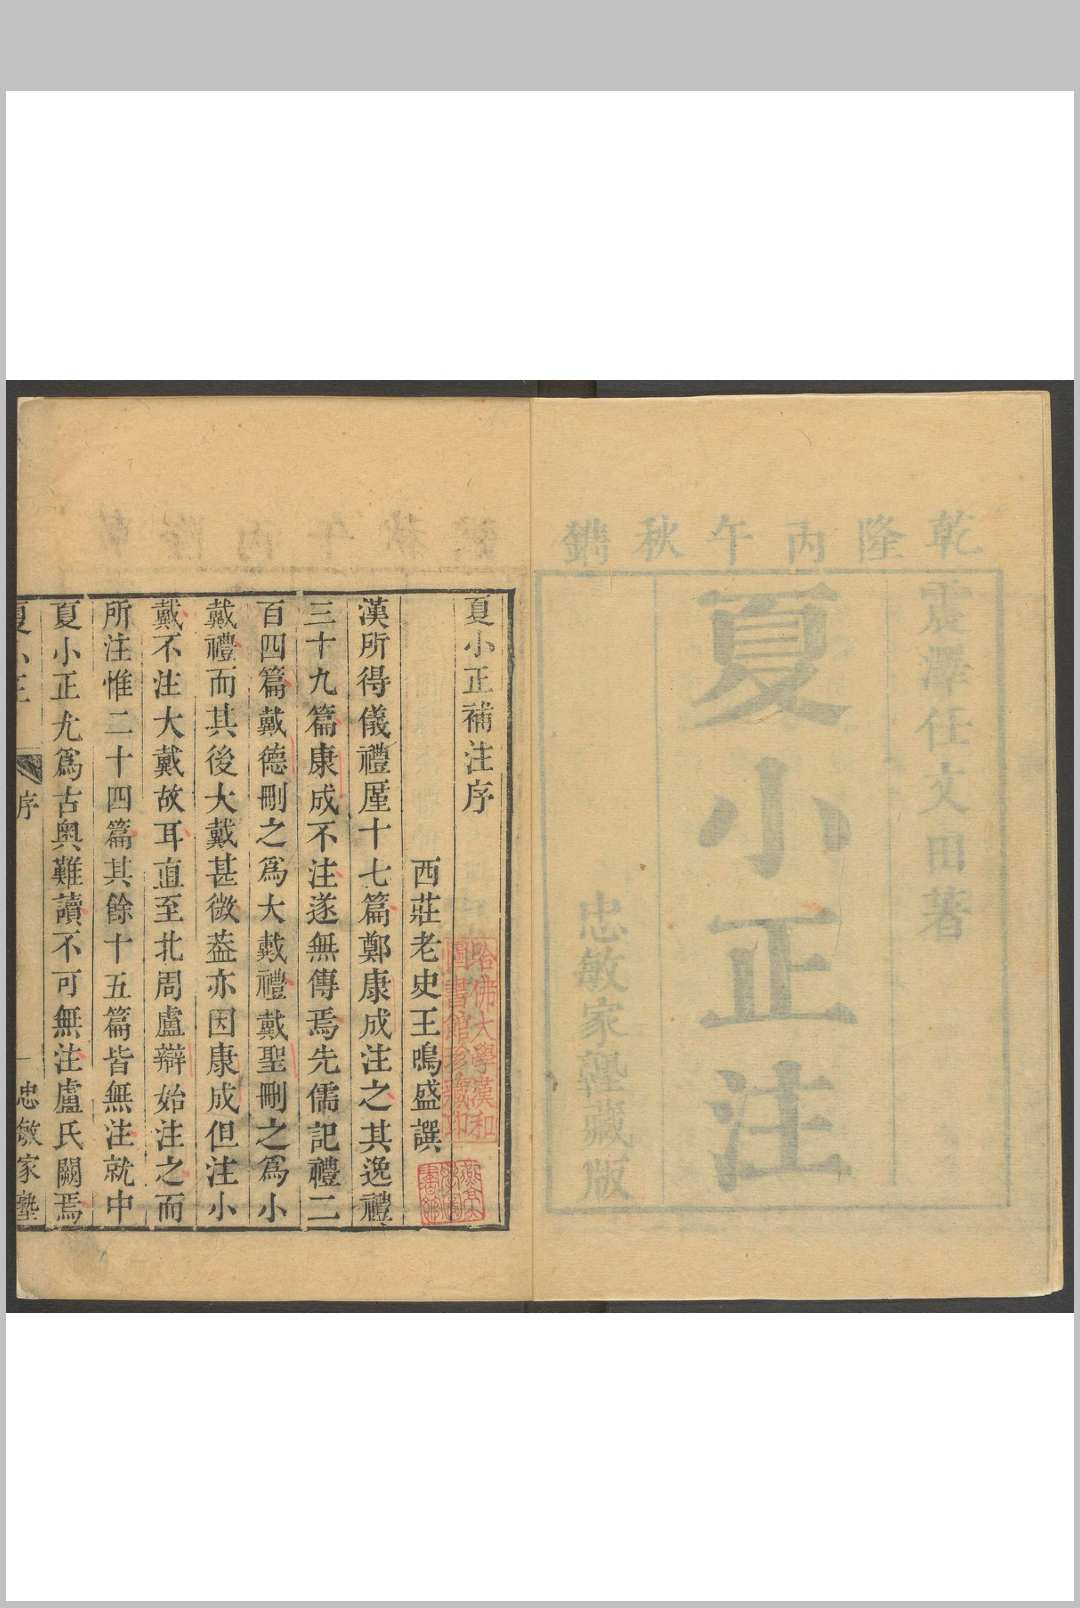 乾隆丙午秋鐫
震澤任文田著
夏小正注
忠敏家塾藏版
夏小正補注序
西莊老史王鳴盛譔
漢所得儀禮厪十七篇鄭康成注之其逸禮
三十九篇康成不注遂無傳焉先儒記禮二
百四篇戴德刪之爲大戴禮戴聖刪之爲小
戴禮而其後大戴甚微葢亦因康成但注小
戴不注大戴故耳直至北周盧辯始注之而
所注惟二十四篇其餘十五篇皆無注就中
夏小正尤爲古奧難讀不可無注盧氏闕焉
夏小正
序
一
忠敏家塾
哈佛大學漢和
圖書館珍藏印